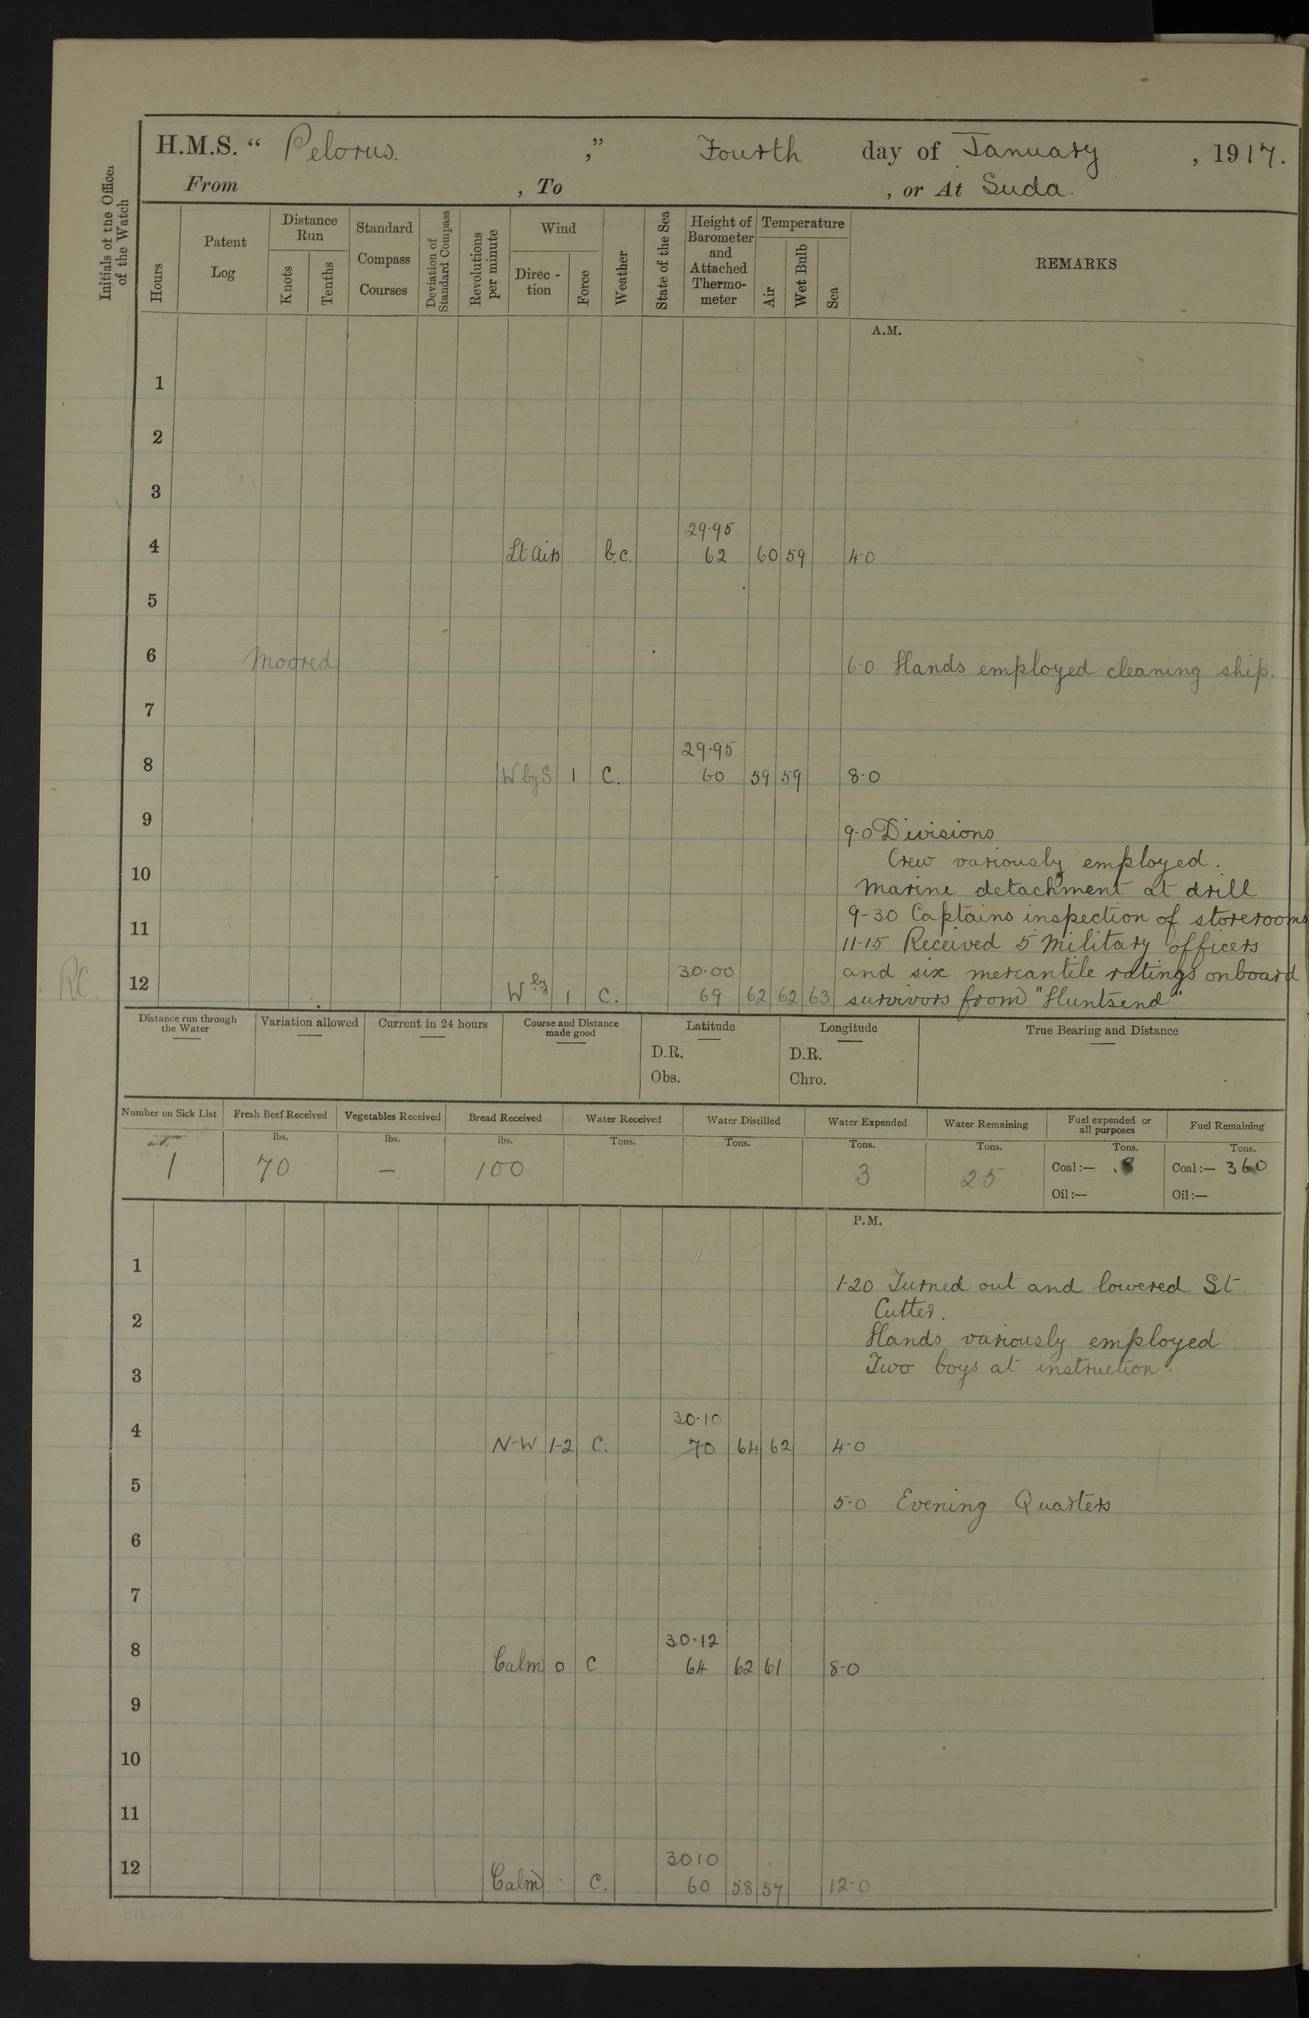 H.M.S. “ Pelorus. ,” Fourth day of January , 1917.
From , To , or At Suda.
Initials of the Officer of the Watch
Hours
Patent Log
Distance Run
Knots
Tenths
Standard Compass Courses
Deviation of Standard Compass
Revolutions per minute
Wind
Direc - tion
Force
Weather
State of the Sea
Height of Barometer and Attached Thermo- meter
Temperature
Air
Wet Bulb
Sea
REMARKS
A.M.
1
2
3
29.95
4 Lt Airs b.c. 62 60 59 4-0
5
6 Moored 6-0 Hands employed cleaning ship.
7
29.95
8 W by S 1 C. 60 59 59 8-0
9 9-0 Divisions
Crew variously employed.
10 Marine detachment at drill
9-30 Captains inspection of storerooms
11 11-15 Received 5 Military officers
30.00 and six mercantile ratings onboard
RC. 12 W'ly 1 C. 69 62 62 63 survivors from "Huntsend"
Distance run through the Water
Variation allowed
Current in 24 hours
Course and Distance made good
Latitude
D.R.
Obs.
Longitude
D.R.
Chro.
True Bearing and Distance
Number on Sick List Fresh Beef Received Vegetables Received Bread Received Water Received Water Distilled Water Expended Water Remaining Fuel expended or all purposes Fuel Remaining
lbs. lbs. lbs. Tons. Tons. Tons. Tons. Tons. Tons.
1 70 — 100 3 25 Coal :— .8 Coal :— 360
Oil :— Oil :—
P.M.
1 1-20 Turned out and lowered St
Cutter.
2 Hands variously employed
3 Two boys at instruction.
30.10
4 N-W 1-2 C. 70 64 62 4-0
5 5-0 Evening Quarters
6
7
30.12
8 Calm 0 C 64 62 61 8-0
9
10
11
3010
12 Calm C. 60 58 57 12-0